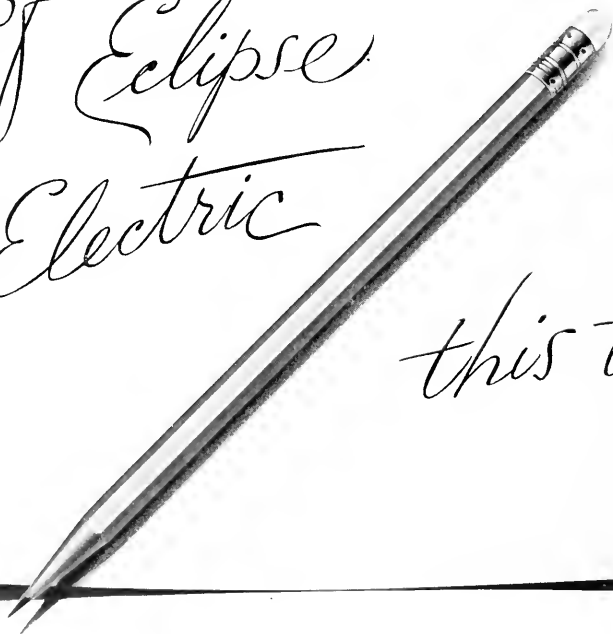 Eclipse
Electric
this